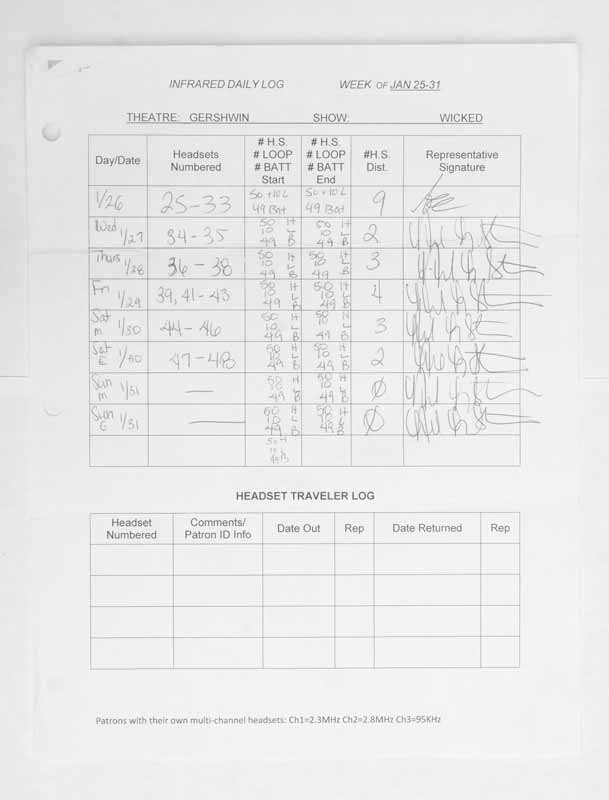 INFRARED DAILY LOG WEEK OF JAN 25-31
THEATRE: GERSHWIN SHOW: WICKED
Day/Date Headsets Numbered # H.S. # LOOP # BATT Start # H.S. # LOOP # BATT End #H.S. Dist. Representative Signature
1/26 25-33 50 + 10 L 49 Bat 50 + 10 L 49 Bat 9
Wed 1/27 34-35 50 H 10 L 49 B 50 H 10 L 49 B 2
Thurs 1/28 36-38 50 H 10 L 49 B 50 H 10 L 49 B 3
Fri 1/29 39, 41-43 50 H 10 L 49 B 50 H 10 L 49 B 4
Sat M 1/30 44-46 50 H 10 L 49 B 50 H 10 L 49 B 3
Sat E 1/30 47-48 50 H 10 L 49 B 50 H 10 L 49 B 2
Sun M 1/31 — 50 H 10 L 49 B 50 H 10 L 49 B Ø
Sun E 1/31 — 50 H 10 L 49 B 50 H 10 L 49 B Ø
50 H
10
49 B
HEADSET TRAVELER LOG
Headset Numbered Comments/ Patron ID Info Date Out Rep Date Returned Rep
Patrons with their own multi-channel headsets: Ch1=2.3MHz Ch2=2.8MHz Ch3=95KHz